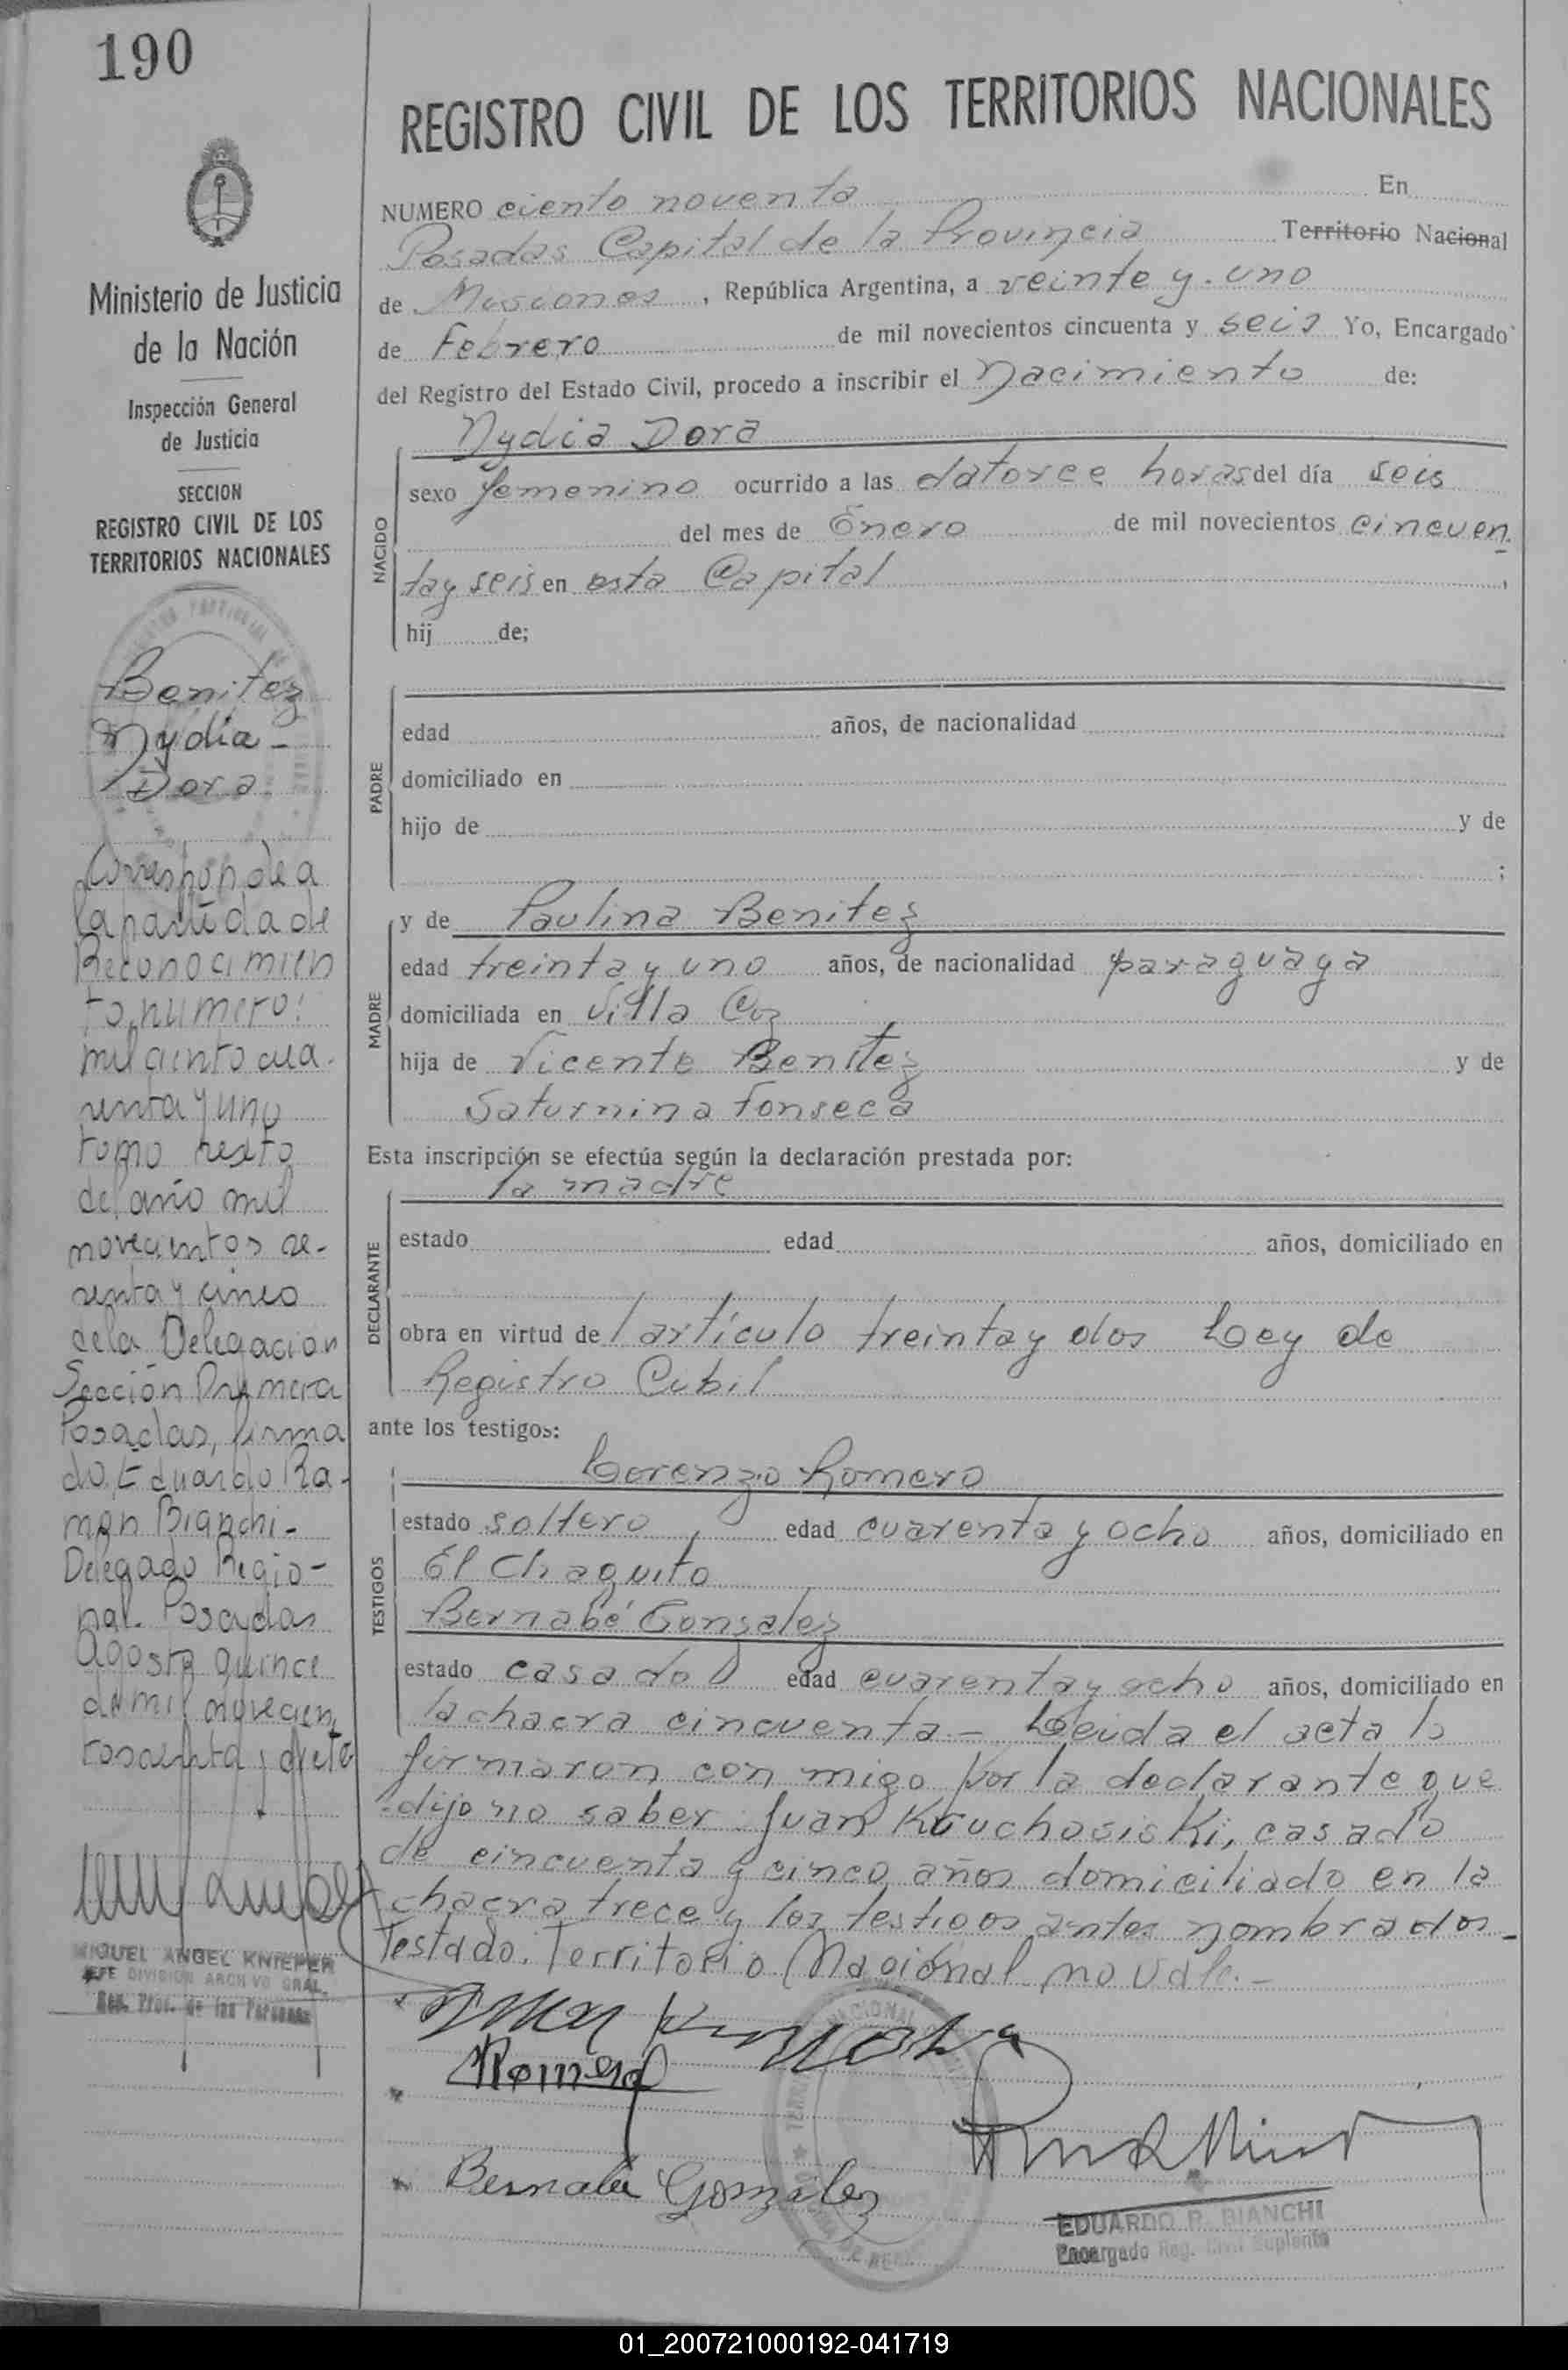 190
REGISTRO CIVIL DE LOS TERRITORIOS NACIONALES
NUMERO ciento noventa En
Posadas Capital de la Provincia Territorio Nacional
de Misiones, República Argentina, a veinte y uno
de Febrero de mil novecientos cincuenta y seis Yo, Encargado
del Registro del Estado Civil, procedo a inscribir el Nacimiento de:
Nydia Dora
NACIDO
sexo femenino ocurrido a las catorce horas del día seis
del mes de Enero de mil novecientos cincuen
ta y seis en esta Capital,
hij de;
PADRE
edad años, de nacionalidad
domiciliado en
hijo de y de
;
MADRE
y de Paulina Benitez
edad treinta y uno años, de nacionalidad paraguaya
domiciliada en Villa Coz
hija de Vicente Benitez y de
Saturnina Fonseca
Esta inscripción se efectúa según la declaración prestada por:
la madre
DECLARANTE
estado edad años, domiciliado en
obra en virtud de l artículo treinta y dos Ley de
Registro Cibil
ante los testigos:
Lorenzo Romero
TESTIGOS
estado soltero edad cuarenta y ocho años, domiciliado en
El Chaquito
Bernabé Gonzalez
estado casado edad cuarenta y ocho años, domiciliado en
la chacra cincuenta.- Leida el acta la
firmaron con migo por la declarante que
dijo no saber Juan casado
de cincuenta y cinco años domiciliado en la
chacra trece y los testigos antes nombrados-
Testado. Territorio Nacional no vale.-
Romero
Bernabé González
EDUARDO R. BIANCHI
Encargado Reg. Civil Suplente
Ministerio de Justicia
de la Nación
Inspección General
de Justicia
SECCION
REGISTRO CIVIL DE LOS
TERRITORIOS NACIONALES
Benitez
Nydia-
Dora
Corresponde a
la partida de
Reconocimien
to, número:
mil ciento cua-
renta y uno
tomo sexto
del año mil
novecientos se-
senta y cinco
de la Delegación
Sección Primera
Posadas, firma
do, Eduardo Ra-
mon Bianchi-
Delegado Regio-
nal- Posadas
Agosto quince
de mil novecien
MIGUEL ANGEL KNIEPER
JEFE DIVISION ARCHIVO GRAL.
Reg. Prov. de las Personas
01_200721000192-041719